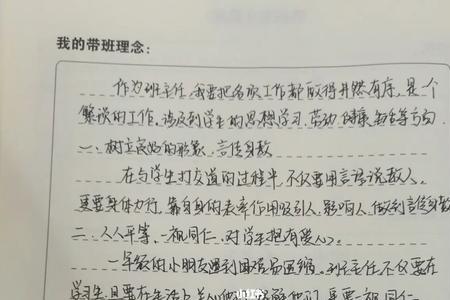 我的带班理念:
作为班主任,我要把各项工作都取得井然有序,是一个
繁琐的工作。涉及到学生的思想学习,劳动,健康,安全等方面
一、树立良好的形象,言传身教
在与学生打交道的过程中,不仅要用言语说教人,
更要身体力行,靠自身的表率作用吸引人,影响人,做到言传身教
二、人人平等,一视同仁,对学生抱有爱心。
一年级的小朋友遇到困难易退缩,班主任不仅要在
学习上,且要在生活上关心他们,了解他们,更要一视同仁
小红书